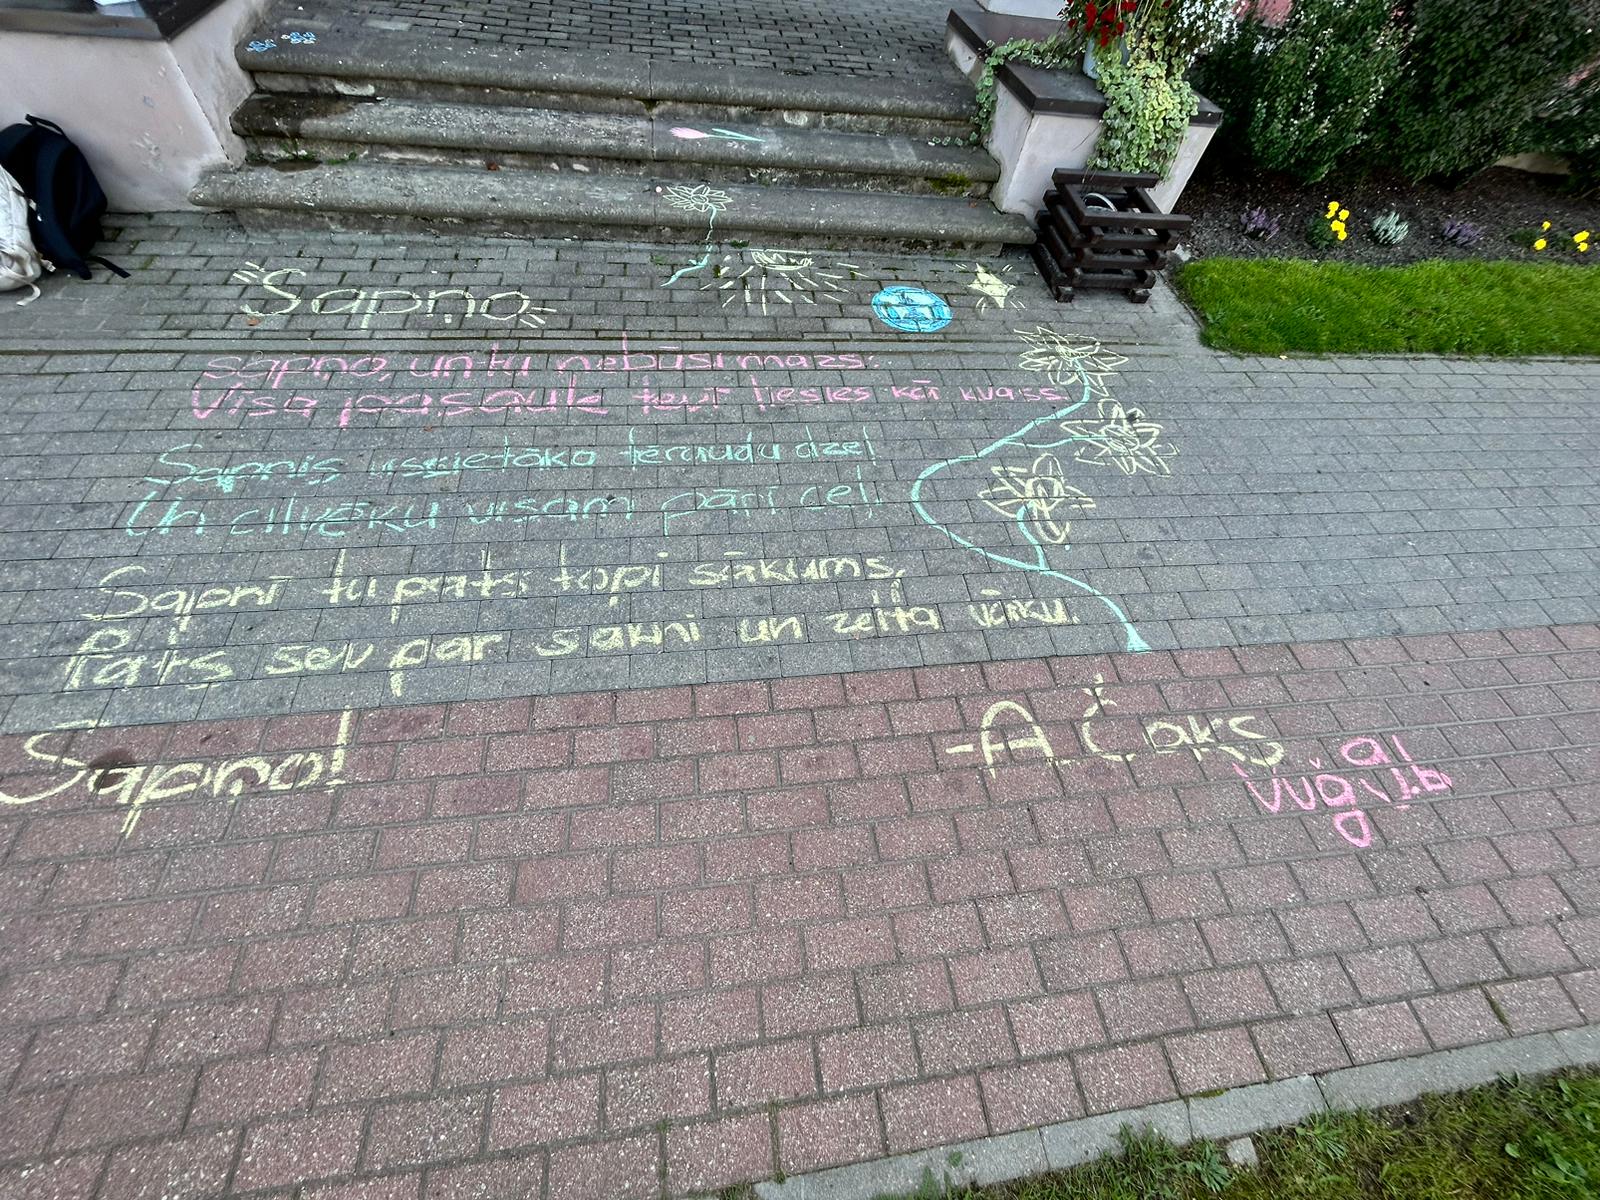 Sapņo
Sapņo, un tu nebūsi mazs:
Visa pasaule tevī liesies kā kvass.
Sapnis, uscietāko tēraudu dzeļ
Un cilvēku visam pāri ceļ.
Sapnī tu pats topi sākums,
Pats sev par sakni un zelta vāku.
Sapņo!
-A. Čaks